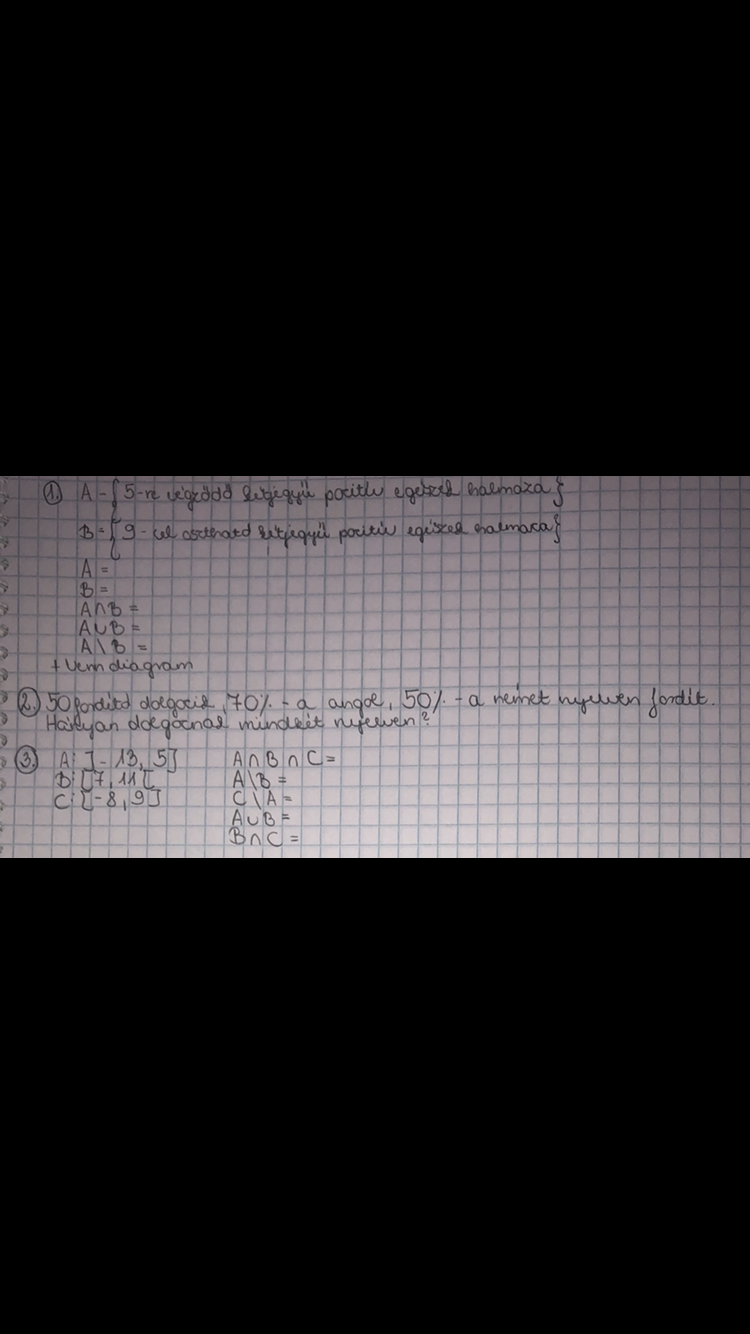 1. A = { 5-re végződő kétjegyű pozitív egészek halmaza }
B = { 9-cel osztható kétjegyű pozitív egészek halmaza }
A =
B =
A∩B =
A∪B =
A\B =
+ Venn diagram
2. 50 fordító dolgozik, 70% -a angol, 50% -a német nyelven fordít.
Hányan dolgoznak mindkét nyelven?
3. A: ]-13, 5] A∩B∩C =
B: [7, 11[ A\B =
C: [-8, 9] C\A =
A∪B =
B∩C =